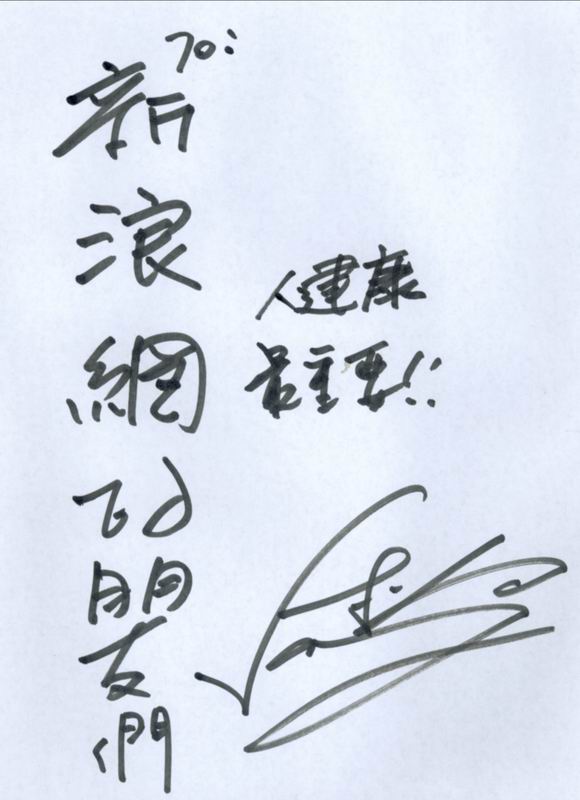 To:
新浪網的朋友們
健康
最重要!!